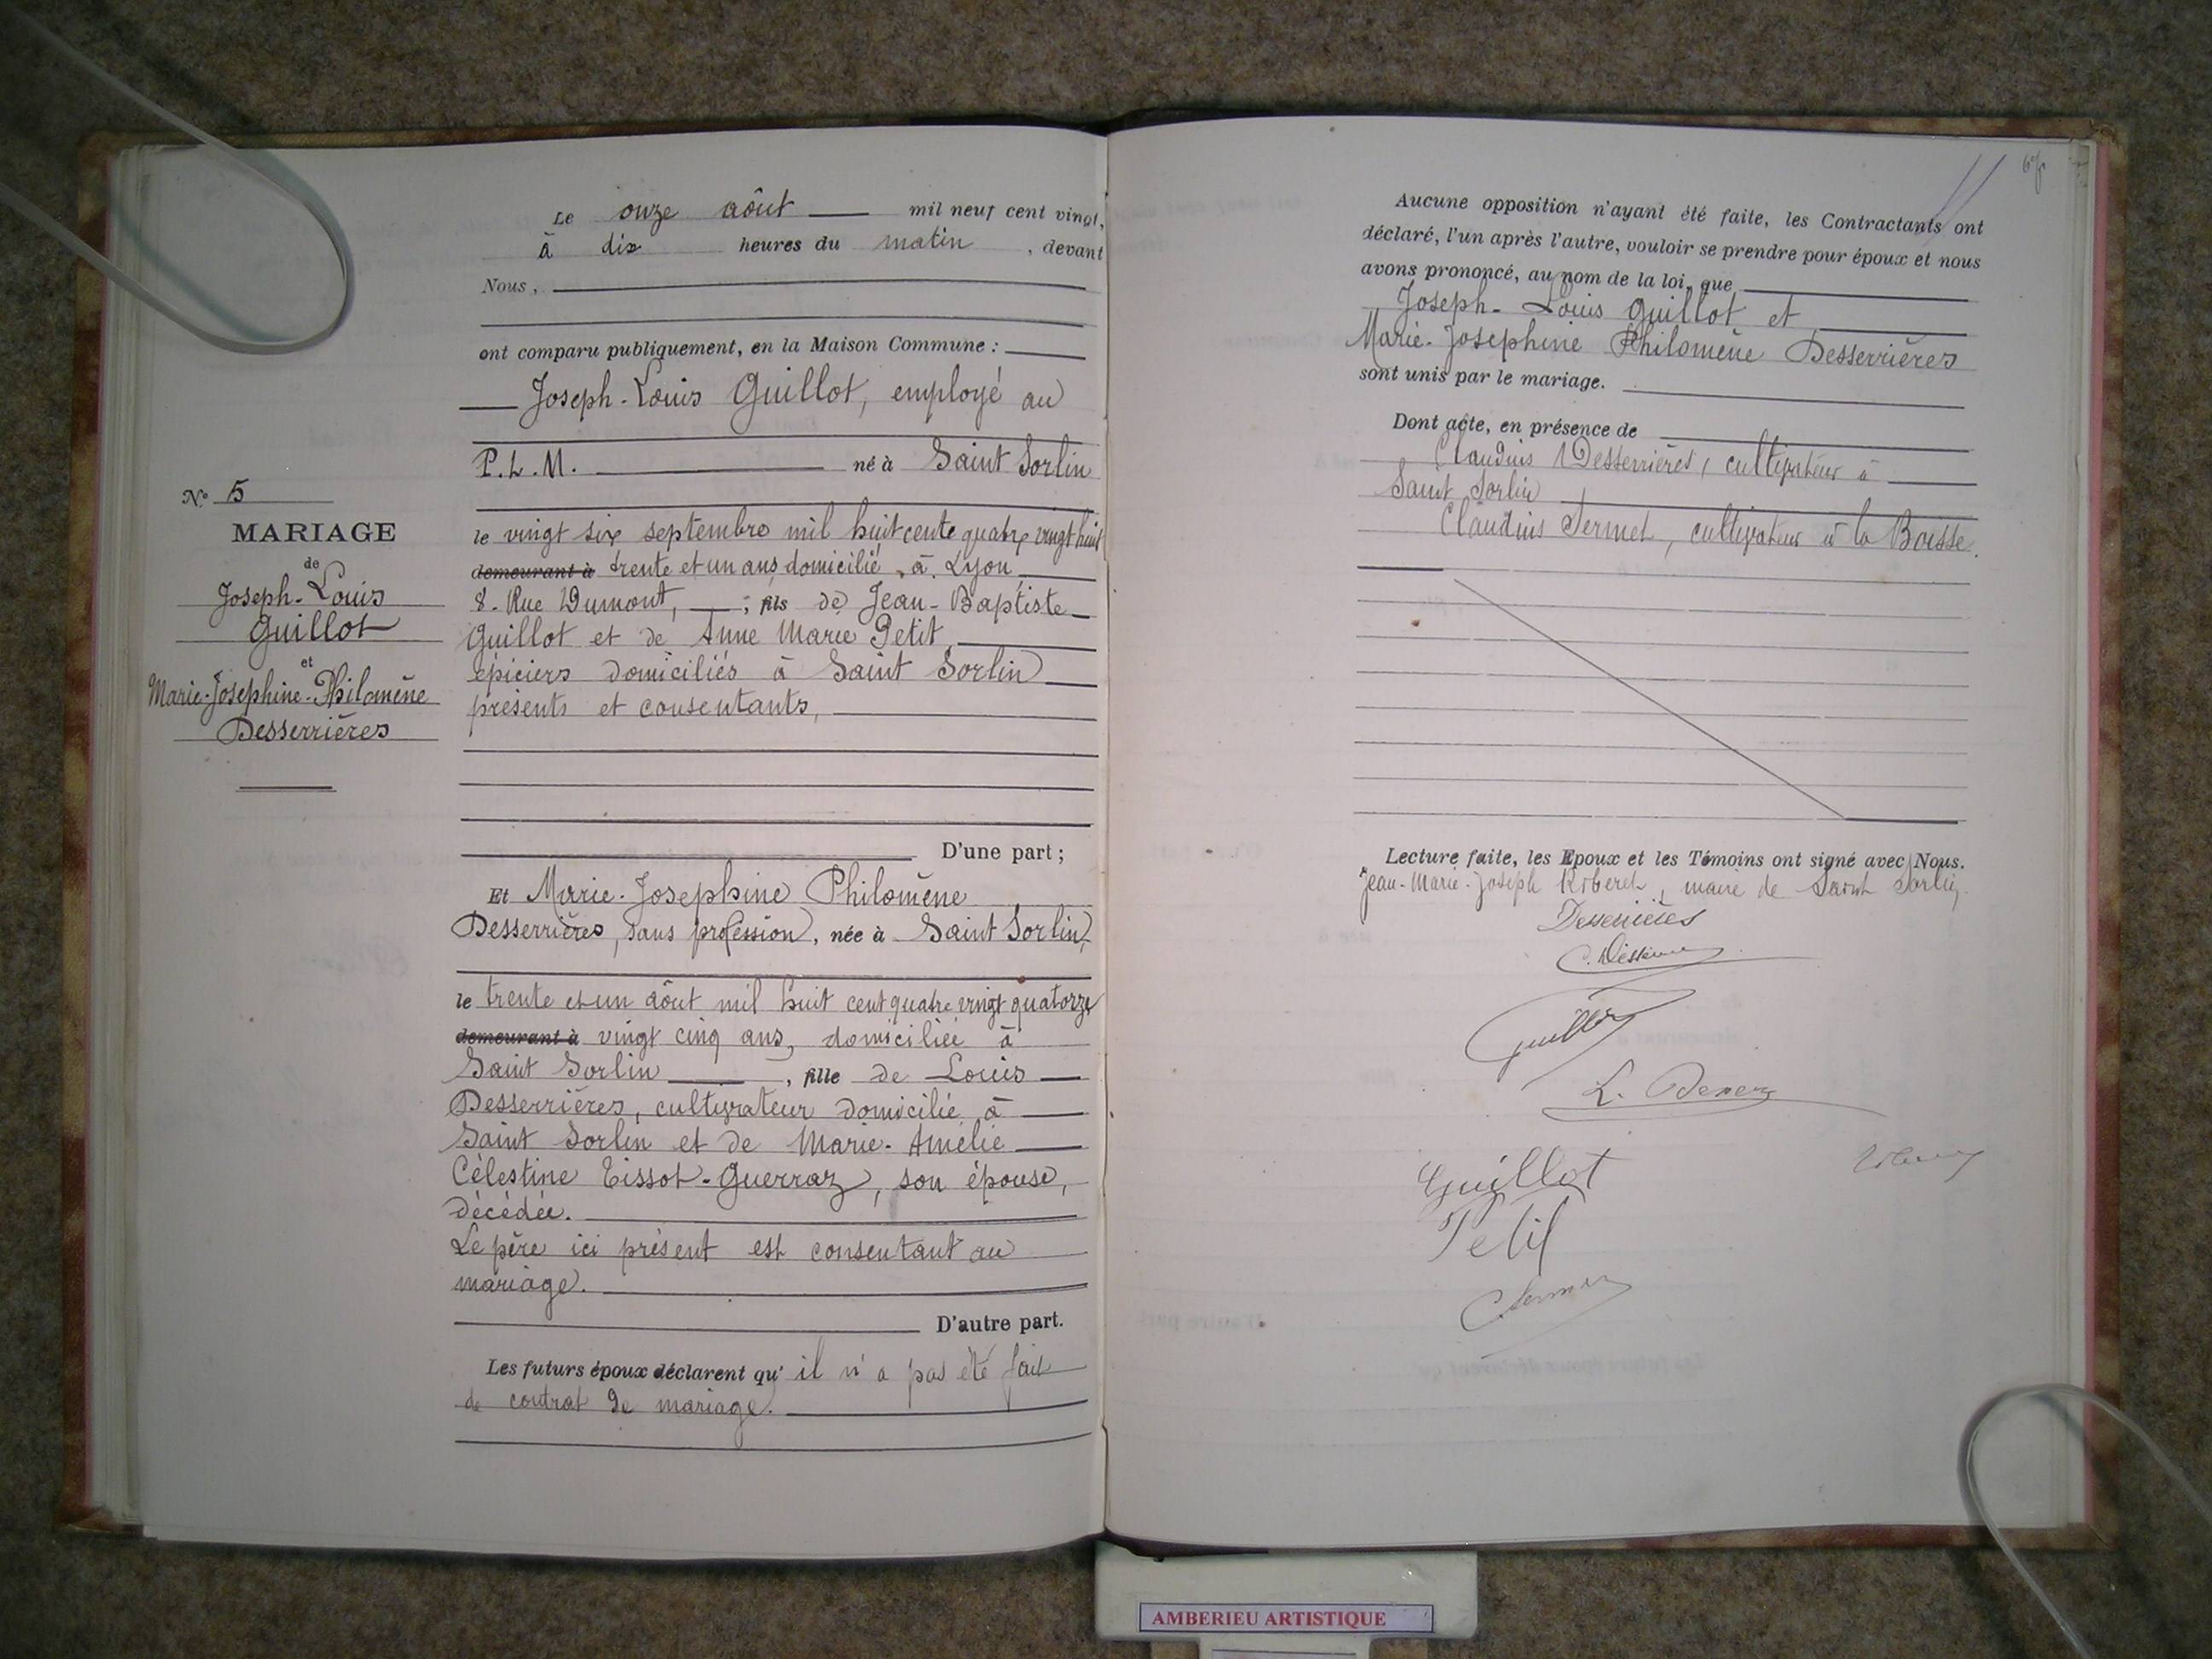 Le onze aôut mil neuf cent vingt,
à dix heures du matin, devant
Nous,
ont comparu publiquement, en la Maison Commune :
Joseph-Louis Guillot, employé au
P.L.M. né à Saint Sorlin
N° 5
MARIAGE
de
Joseph-Louis
Guillot
et
Marie-Josephine-Philomène
Desserrières
le vingt six septembre mil huit cents quatre vingt huit
demeurant à trente et un ans, domicilié, à Lyon
8. Rue Dumont, ; fils de Jean-Baptiste
Guillot et de Anne Marie Petit,
épiciers domiciliés à Saint Sorlin
présents et consentants,
D'une part ;
Et Marie-Josephine Philomène
Desserrières, sans profession, née à Saint Sorlin,
le trente et un aôut mil huit cent quatre vingt quatorze
demeurant à vingt cinq ans, domiciliée à
Saint Sorlin, fille de Louis
Desserrières, cultivateur domicilié, à
Saint Sorlin et de Marie-Amélie
Célestine Tissot-Guerraz, son épouse,
décédée.
Le père ici présent est consentant au
mariage.
D'autre part.
Les futurs époux déclarent qu' il n'a pas été fait
de contrat de mariage.
Aucune opposition n'ayant été faite, les Contractants ont
déclaré, l'un après l'autre, vouloir se prendre pour époux et nous
avons prononcé, au nom de la loi, que
Joseph-Louis Guillot et
Marie-Josephine Philomène Desserrières
sont unis par le mariage.
Dont acte, en présence de
Claudius Desserrières, cultivateur à
Saint Sorlin
Claudius Sermet, cultivateur à la Boisse.
Lecture faite, les Epoux et les Témoins ont signé avec Nous.
Jean-Marie-Joseph, maire de Saint Sorlin
Desserrières
Guillot
Guillot
Petit
AMBERIEU ARTISTIQUE